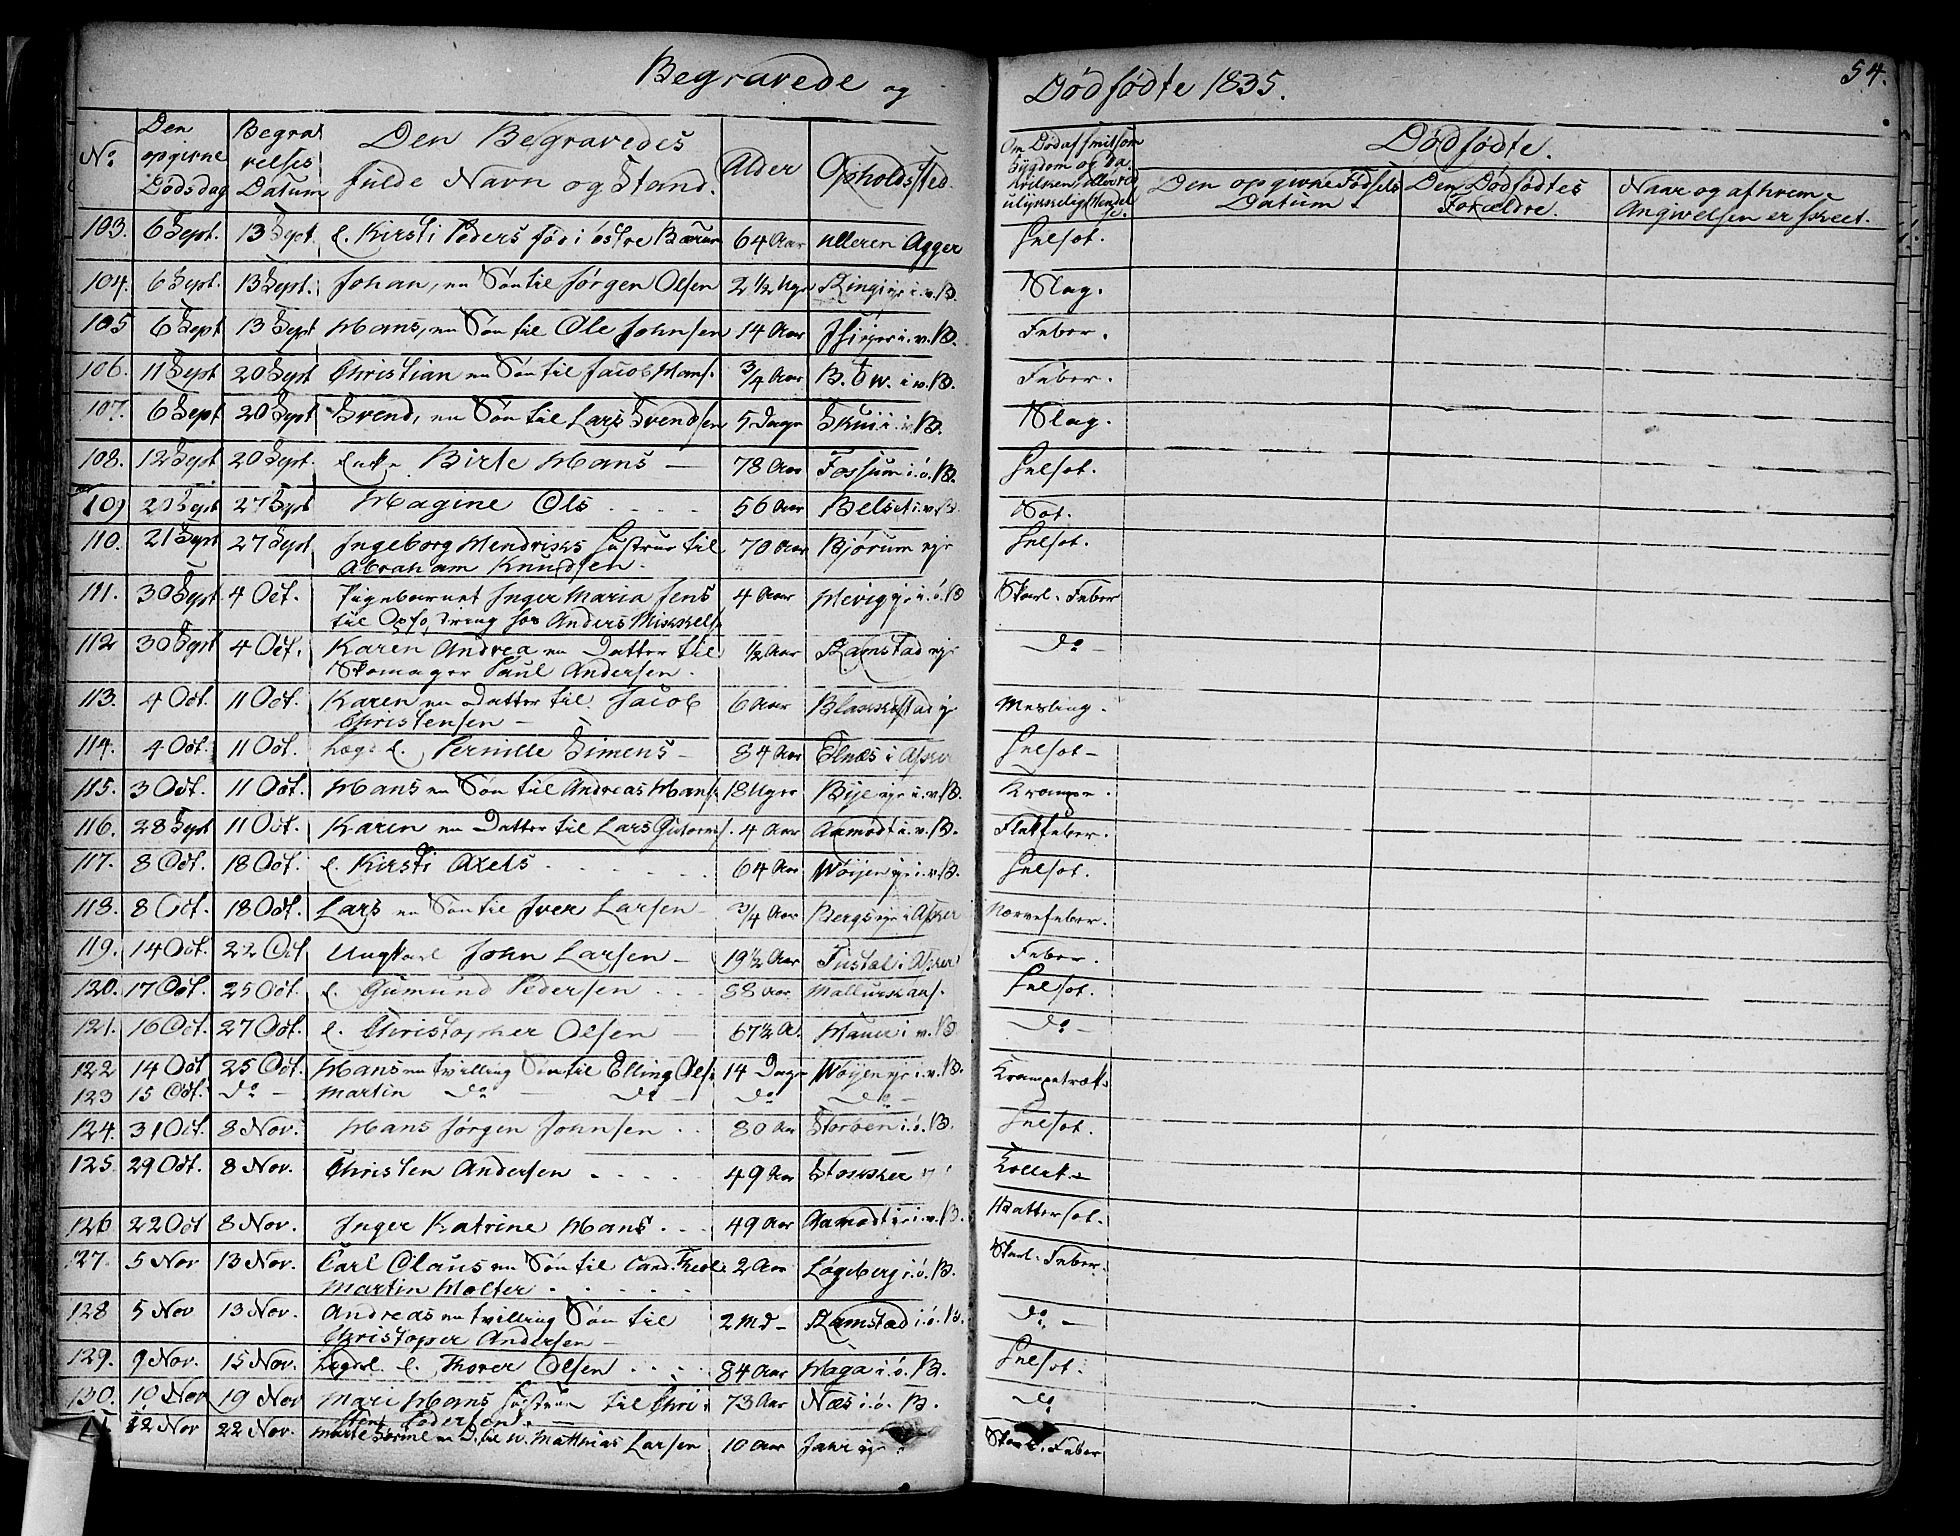 Begravede og Dødfødte 1835. 54.
No Den opgivne Dødsdag Begravelses Datum Den Begravedes fulde Navn og Stand. Alder Opholdssted. Om Død af smitsom Sygdom
Dødfødte.
Den opgivne Fødsels Datum. Den Dødfødtes Forældre. Naar og af hvem Angivelsen er skeet.
103. 6 Sept. 13 Sept. L. Kirsti Peders fød i østre Bærum 64 Aar Ulleren Agger Helsot.
104. 6 Sept. 13 Sept. Johan, en Søn til Jørgen Olsen 2 1/2 Uge Ringi i. v. B. Slag.
105 6 Sept 13 Sept Hans, en Søn til Ole Johnsen 14 Aar i. v. B. Feber.
106. 11 Sept 20 Sept Christian en Søn til Jacob Hans. 3/4 Aar i v. B. Feber.
107. 6 Sept 20 Sept Svend, en Søn til Lars Svendsen 5 Dage Skui i. v. B. Slag.
108. 12 Sept 20 Sept. Enke Birte Hans — 78 Aar Fossum i. ø. B. Helsot.
109 23 Sept 27 Sept Magine Ols 56 Aar Belset i. v. B. Sot.
110. 21 Sept 27 Sept Ingeborg Hendriks Hustrue til 70 Aar Bjørum eje Helsot.
Abraham Knudsen.
111. 30 Sept 4 Oct. Pigebarnet Inger Maria Jens 4 Aar Hevig i. ø. B Skarl. Feber
til Opfo,dring hos Anders Mikkels.
112 30 Sept 4 Oct. Karen Andrea en Datter til 1/2 Aar Ramstad eje do —
Skomager Paul Andersen.
113. 4 Oct. 11 Oct. Karen en Datter til Jacob 6 Aar Blakkestad Mesling.
Christensen —
114. 4 Oct. 11 Oct. Lægs L. Pernille Simens — 84 Aar Elnæs i Asker Helsot —
115. 3 Oct. 11 Oct. Hans en Søn til Andreas Hans. 18 Uger Bije eje i. v. B. Krampe.
116. 28 Sept 11 Oct. Karen en Datter til Lars Gulorms. 4 Aar Aamodt i. v. B. Flekfeber.
117. 8 Oct. 18 Oct. L. Kirsti Axels 64 Aar Wøijen eje i. v. B. Helsot.
118. 8 Oct. 18 Oct. Lars en Søn til Iver Larsen — 3/4 Aar Bergs eje i Asker Nervefeber.
119. 14 Oct. 22 Oct Ungkarl John Larsen — 19 1/2 Aar Tustal i Asker Feber.
120. 17 Oct. 25 Oct. L. Gumund Pedersen 88 Aar Helsot.
121. 16 Oct. 27 Oct. L. Christopher Olsen 67 1/2 A. Haur i v. B. do —
122 14 Oct 25 Oct. Hans en tvilling Søn til Elling Ols. 14 Dage Wøijen eje i. v. B. Krampetræk.
123 15 Oct. do — Martin do — do — do do —
124. 31 Oct. 8 Nov. Hans Jørgen Johnsen 80 Aar Storøen i. ø. B. Helsot.
125. 29 Oct. 8 Nov. Christen Andersen 49 Aar Stokker Kollik —
126 22 Oct 8 Nov. Inger Katrine Hans 49 Aar Aamodt i. v. B. Brattersot.
127. 5 Nov 13 Nov. Carl Claus en Søn til Cand. Theol. 2 Aar Løgeberg i. ø. B. Skarl. Feber.
Martin Holter
128 5 Nov 13 Nov. Andreas en tvilling Søn til 2 Md — Ramstad i. ø. B. do —
Christopher Andersen —
129. 9 Nov. 15 Nov. Lægsl. L. Thorer Olsen 84 Aar Haga i. ø. B. Helsot.
130. 10 Nov 19 Nov Mari Hans Hustrue til Chri- 73 Aar Næs i. ø. B. do
stens Pedersen. —
12 Nov 22 Nov. Marte en D. til Matthias Larsen 10 Aar Jahr eje Skarl. Feber